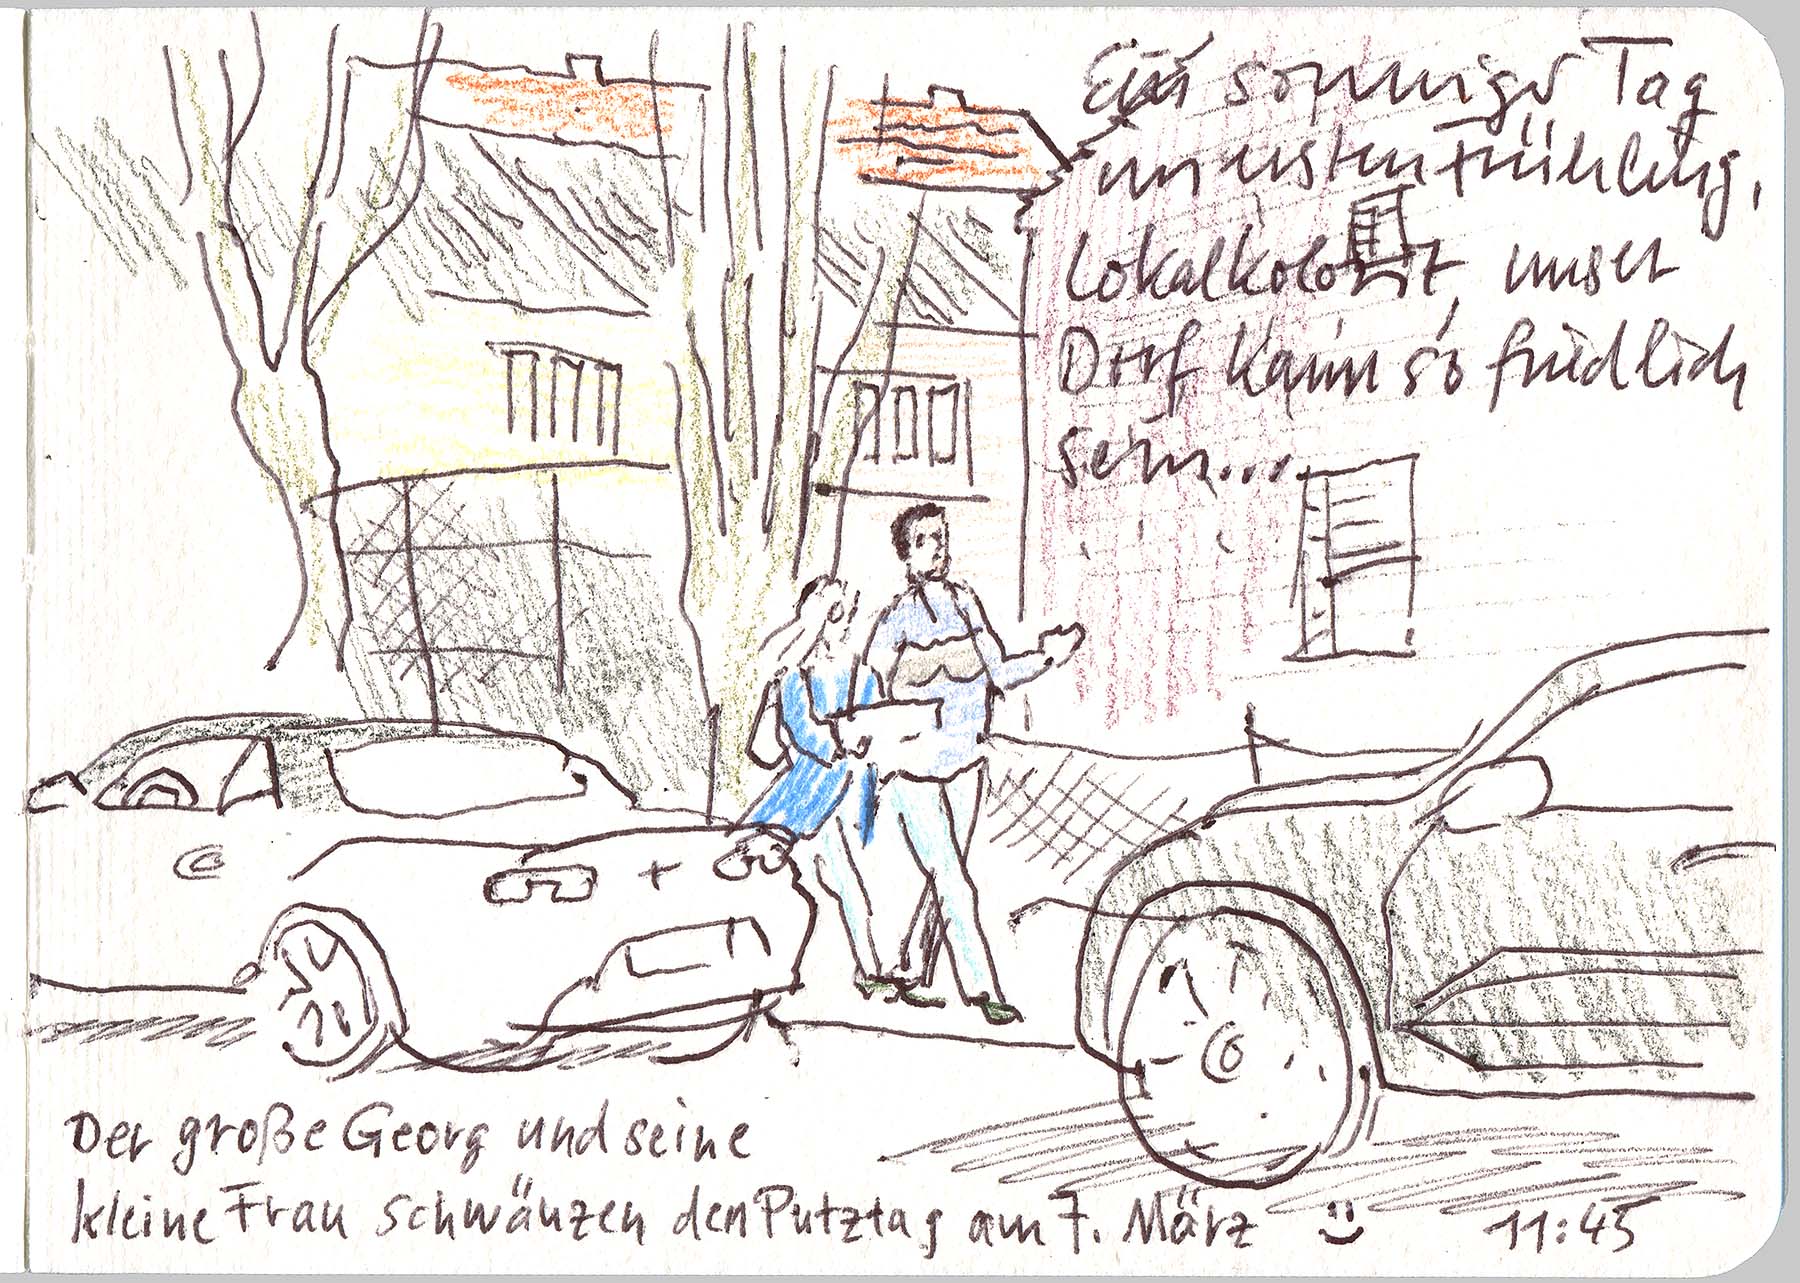 Ein sonniger Tag
im ersten Frühling,
Lokalkolorit, unser
Dorf kann so friedlich
sein...
Der große Georg und seine
kleine Frau schwänzen den Putztag am 7. März 11:45